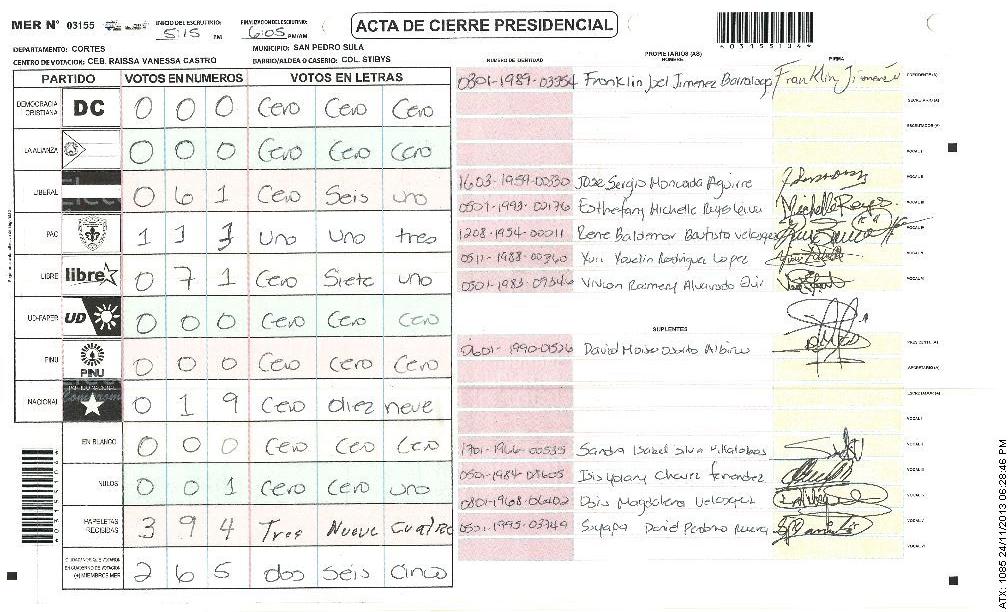 MER N° 03155 INICIO DEL ESCRUTINIO: 5:15 PM FINALIZACION DEL ESCRUTINIO: 6:05 PM/AM
ACTA DE CIERRE PRESIDENCIAL
*03155104*
DEPARTAMENTO: CORTES MUNICIPIO: SAN PEDRO SULA
CENTRO DE VOTACION: CEB. RAISSA VANESSA CASTRO BARRIO/ALDEA O CASERIO: COL. STIBYS
PARTIDO VOTOS EN NUMEROS VOTOS EN LETRAS
DEMOCRACIA CRISTIANA DC 0 0 0 Cero Cero Cero
LA ALIANZA 0 0 0 Cero Cero Cero
LIBERAL 0 6 1 Cero Seis uno
PAC 1 1 3 Uno Uno tres
LIBRE libre 0 7 1 Cero Siete uno
UD-FAPER UD 0 0 0 Cero Cero Cero
PINU PINU 0 0 0 Cero Cero Cero
NACIONAL 0 1 9 Cero diez neve
EN BLANCO 0 0 0 Cero Cero Cero
NULOS 0 0 1 Cero Cero uno
PAPELETAS RECIBIDAS 3 9 4 Tres Nueve Cuatro
CIUDADANOS QUE VOTARON EN CUADERNO DE VOTACION (+) MIEMBROS MER 2 6 5 dos Seis Cinco
PROPIETARIOS (AS)
NUMERO DE IDENTIDAD NOMBRE FIRMA
0301-1989-03354 Franklin Joel Jimenez Franklin Jimenez PRESIDENTE (A)
SECRETARIO (A)
ESCRUTADOR (A)
VOCAL I
1603-1959-00330 Jose Sergio Moncada Aguirre VOCAL II
0501-1993-00176 Esthefany Michelle VOCAL III
1208-1954-00011 Rene Baldemar Bautista Velasquez VOCAL IV
0511-1988-00360 Yuri Yaselin Rodriguez Lopez VOCAL V
0501-1983-09546 Vivian Alvarado VOCAL VI
SUPLENTES
0601-1990-01526 David PRESIDENTE (A)
SECRETARIO (A)
ESCRUTADOR (A)
VOCAL I
1701-1966-00535 Sandra Isabel Silva Villalobos VOCAL II
0501-1984-08605 Chavez fernandez VOCAL III
0801-1968-06402 Magdalena Velasquez VOCAL IV
0501-1993-03749 David VOCAL V
VOCAL VI
ATX: 1085 24/11/2013 06:28:46 PM